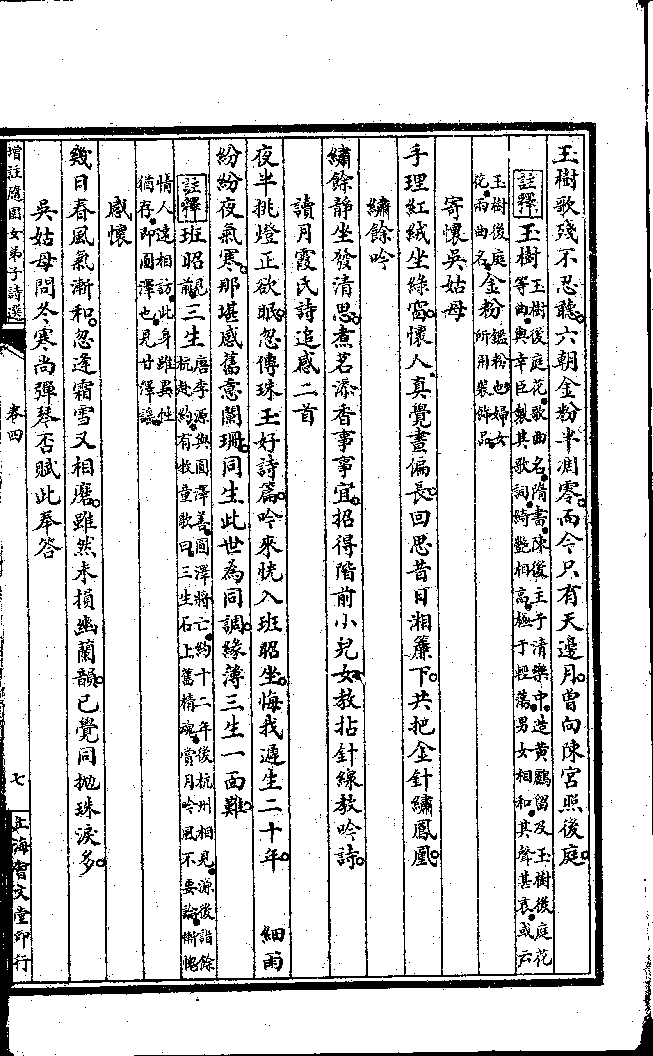 玉樹歌殘不忍聽。六朝金粉半凋零。而今只有天邊月。曾向陳宮照後庭。
註釋 玉樹 玉樹後庭花。歌曲名。隋書。陳後主于清樂中。造黃鸝留及玉樹後庭花
等曲。與幸臣製其歌詞。綺艷相高。極于輕蕩。男女相和。其聲甚哀。或云
玉樹後庭
花兩曲名。
金粉 鉛粉也。婦女
所用裝飾品。
寄懷吳姑母
手理紅絨坐綠窗。懷人真覺晝偏長。回思昔日湘簾下。共把金針繡鳳凰。
繡餘吟
繡餘靜坐發清思。煮茗添香事事宜。招得階前小兒女。教拈針線教吟詩。
讀月霞氏詩追感二首
夜半挑燈正欲眠。忽傳珠玉好詩篇。吟來恍入班昭坐。悔我遲生二十年。 細雨
紛紛夜氣寒。那堪感舊意闌珊。同生此世為同調。緣薄三生一面難。
註釋 班昭 見前。 三生 唐李源與圓澤善。圓澤將亡。約十二年後杭州相見。源後詣餘
杭赴約。有牧童歌曰。三生石上舊精魂。賞月吟風不要論。慚愧
情人遠相訪。此身雖異性
猶存。即圓澤也。見甘澤謠。
感懷
幾日春風氣漸和。忽逢霜雪又相磨。雖然未損幽蘭韻。已覺同拋珠淚多。
吳姑母問冬寒尚彈琴否賦此奉答
增註隨園女弟子詩選
卷四
七
上海會文堂印行